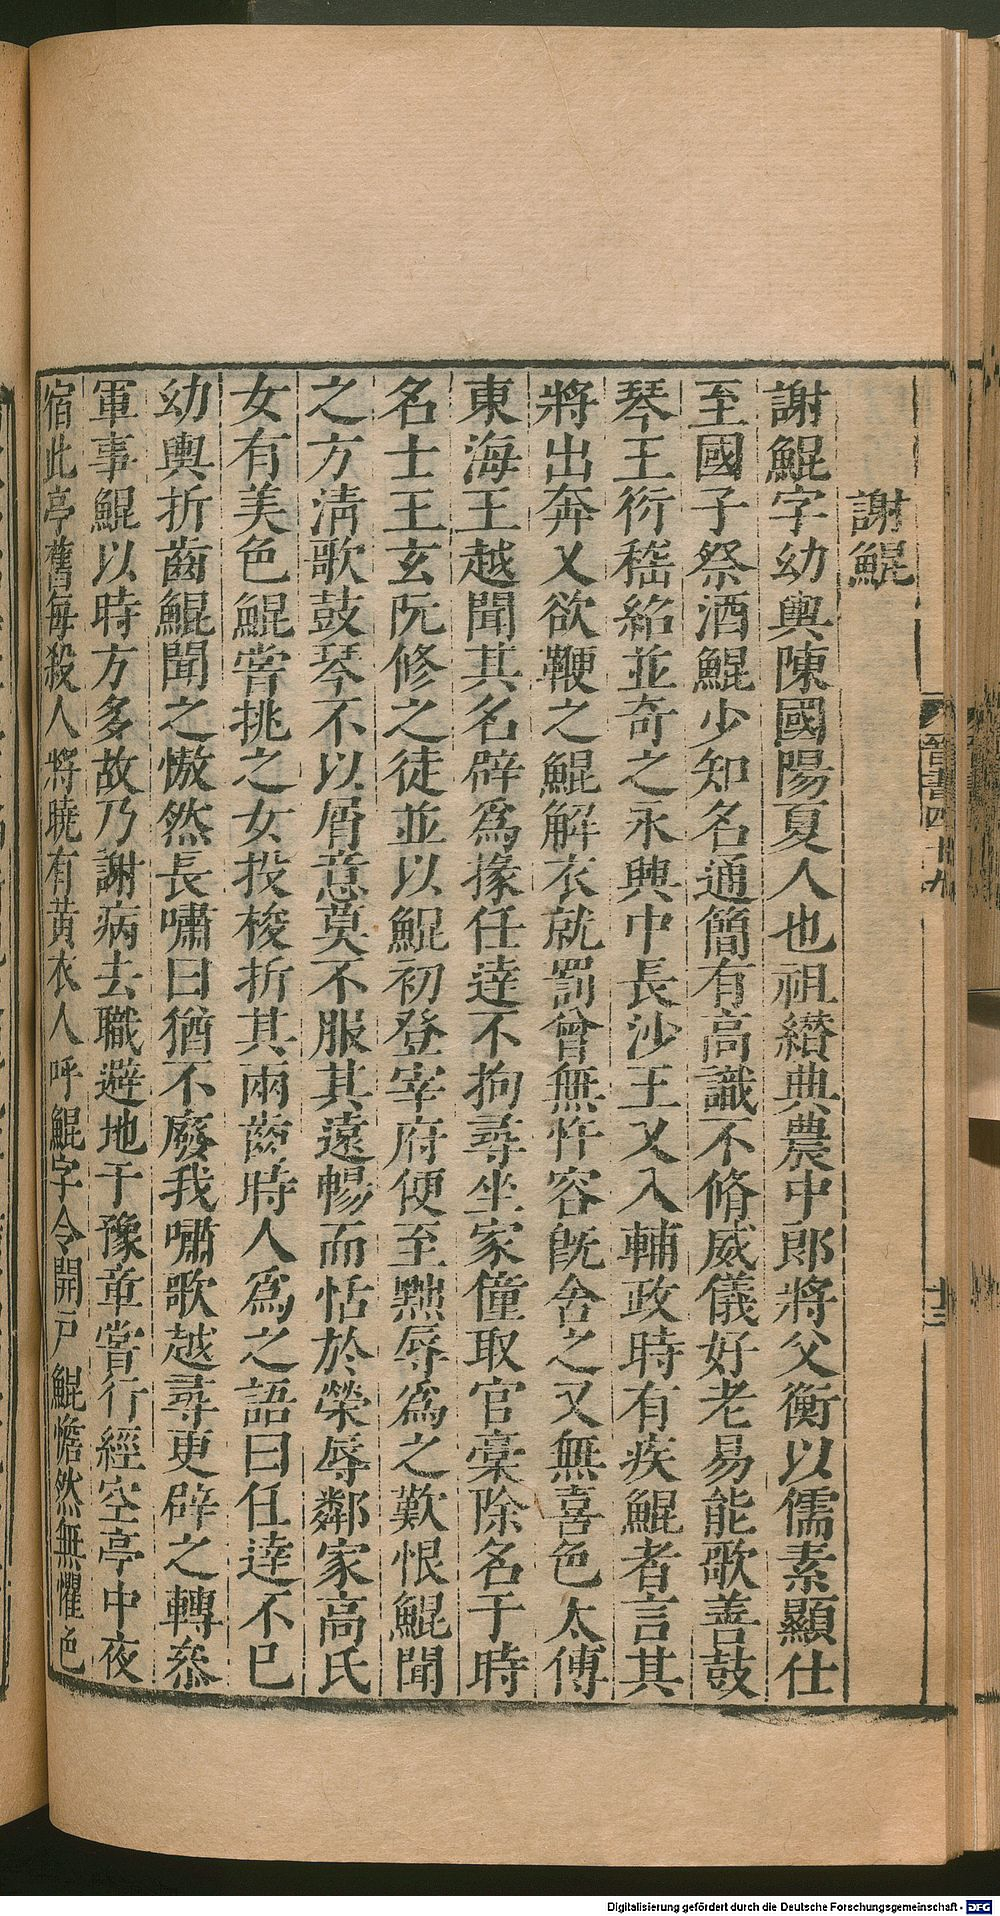 晉書四十九
十三
謝鯤
謝鯤字幼輿陳國陽夏人也祖纉典農中郎將父衡以儒素顯仕
至國子祭酒鯤少知名通簡有高識不脩威儀好老易能歌善鼓
琴王衍嵇紹並奇之永興中長沙王乂入輔政時有疾鯤者言其
將出奔乂欲鞭之鯤解衣就罰曾無忤容旣舍之又無喜色太傅
東海王越聞其名辟爲掾任達不拘尋坐家僮取官稾除名于時
名士王玄阮修之徒並以鯤初登宰府便至黜辱爲之歎恨鯤聞
之方淸歌鼓琴不以屑意莫不服其遠暢而恬於榮辱鄰家高氏
女有美色鯤嘗挑之女投梭折其兩齒時人爲之語曰任達不已
幼輿折齒鯤聞之慠然長嘯曰猶不廢我嘯歌越尋更辟之轉叅
軍事鯤以時方多故乃謝病去職避地于豫章嘗行經空亭中夜
宿此亭舊每殺人將曉有黃衣人呼鯤字令開戸鯤憺然無懼色
Digitalisierung gefördert durch die Deutsche Forschungsgemeinschaft - DFG